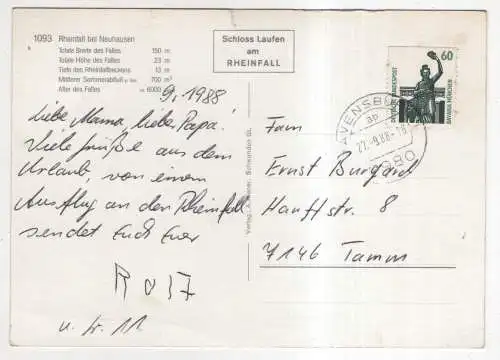 1093 Rheinfall bei Neuhausen
Totale Breite des Falles 150 m
Totale Höhe des Falles 23 m
Tiefe des Rheinfallbeckens 13 m
Mittlerer Sommerabfluß p. Sek. 700 m³
Alter des Falles ca. 6000
Schloss Laufen
am
RHEINFALL
9. 1988
Liebe Mama, liebe Papa!
Viele Grüße aus dem
Urlaub, von einem
Ausflug an den Rheinfall
sendet Euch Euer
Fam
Ernst Burgard
Hauffstr. 8
7146 Tamm
60
DEUTSCHE BUNDESPOST
BAVARIA MÜNCHEN
RAVENSBU
27.-9.88-18
Verlag